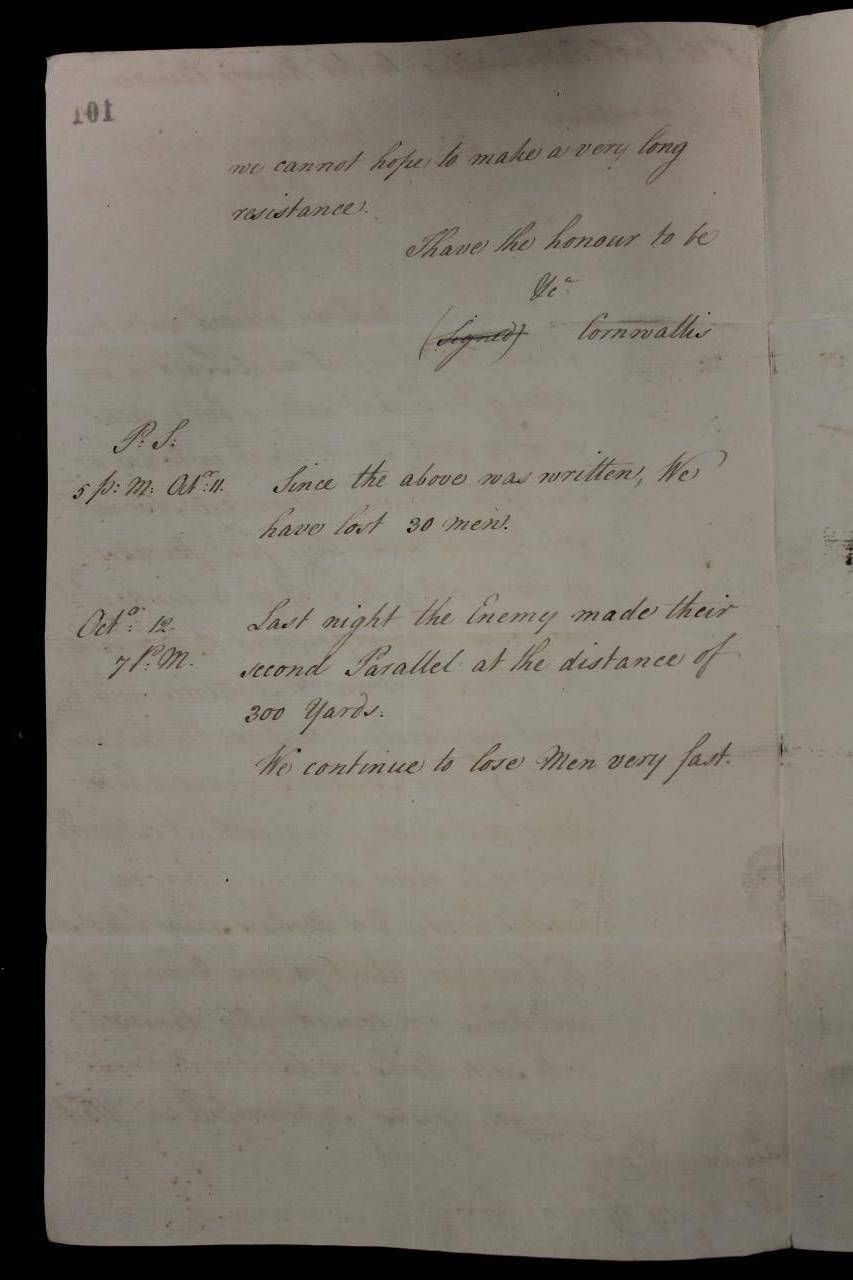 101
we cannot hope to make a very long
resistance.
I have the honour to be
&c.a
(Signed) Cornwallis
P: S:
5 p: m: Octr: 11. Since the above was written, We
have lost 30 men.
Octor: 12. Last night the Enemy made their
7 P: M. second Parallel at the distance of
300 Yards.
We continue to lose Men very fast.